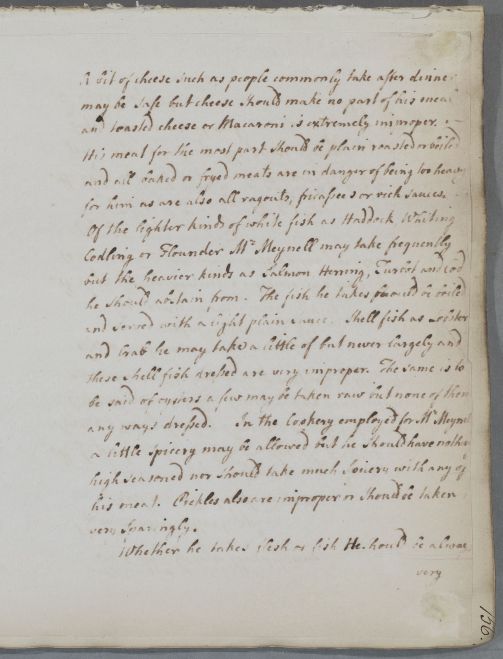 A bit of cheese such as people commonly take after dinner
may be safe but cheese should make no part of his meal
and toasted cheese or Macaroni is extremely improper.
His meat for the most part should be plain roasted or boiled
and all baked or fryed meats are in danger of being too heavy
for him as are also all ragouts, fricassees or rich sauces.
Of the lighter kinds of white fish as Haddock Whiting
Codling or Flounder Mr. Meynell may take frequently
but the heavier kinds as Salmon Herring, Turbot and Cod
he should abstain from. The fish he takes should be boiled
and served with a light plain sauce. Shell fish as Lobster
and Crab he may take a little of but never largely and
these shell fish dressed are very improper. The same is to
be said of oysters a few may be taken raw but none of them
any ways dressed. In the Cookery employed for Mr. Meynell
a little spicery may be allowed but he should have nothing
high seasoned nor should take much spicery with any of
his meat. Pickles also are improper or should be taken
very sparingly.
Whether he takes flesh or fish He should be always
very
156.